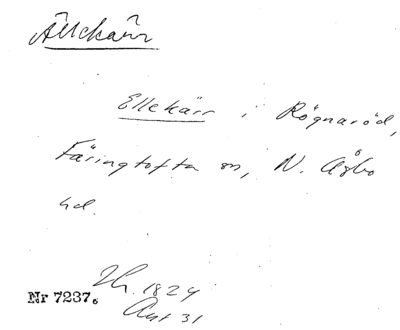 Ällekärr
Ellekärr i Rögnaröd,
Färingtofta sn, N. Åsbo
hd.
1824
Nr 7237.
Aug 31